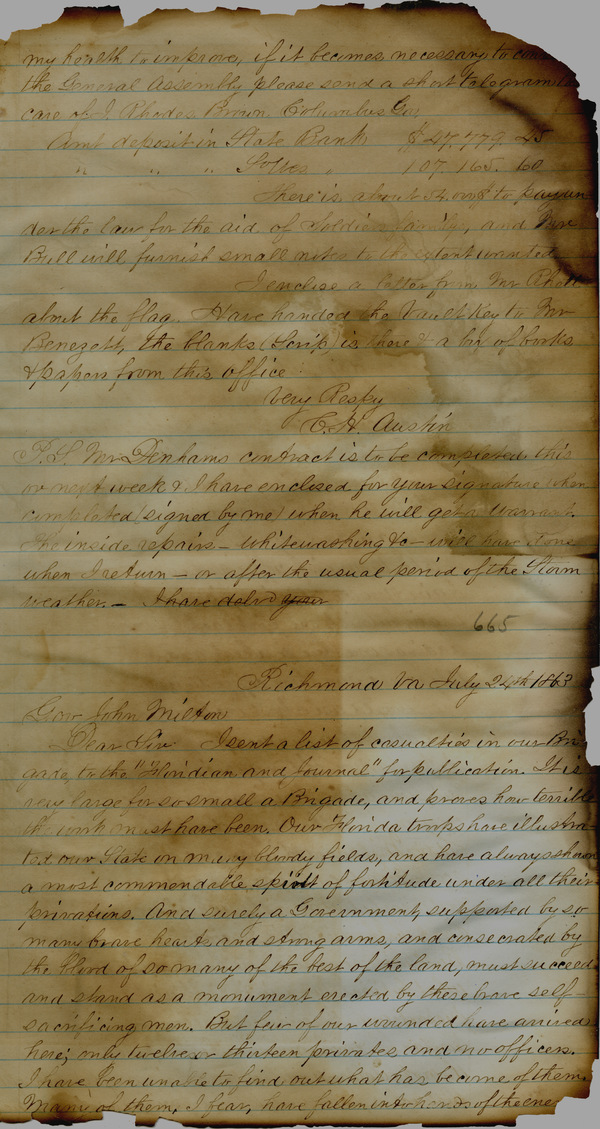 my health to improve, if it becomes necessary to
the General Assembly please send a short telegram
care of J. Rhodes Brown, Columbus Ga,
Amt deposit in State Bank $47.779. 45
" " " 107.165. 60
There is about to pay un
der the law for the aid of Soldiers family, and Mr
Bull will furnish small notes to the extent wanted
I enclose a letter from Mr Rhett
about the flag. Have handed the Vault Key to Mr
Benezett, the blanks (Scrip) is there & a box of books
& papers from this office
Very Respy
C. H. Austin
P.S. Mr Denhams contract is to be completed this
or next week & I have enclosed for your signature when
completed (signed by me) when he will get a warrant.
The inside repairs – whitewashing &c – will have done
when I return – or after the usual period of the Storm
weather. – I have delvd your
665
Richmond Va July 24th 1863
Gov John Milton
Dear Sir I sent a list of casualties in our Bri
gade, to the "Floridian and Journal" for publication. It is
very large for so small a Brigade, and proves how terrible
the work must have been. Our Florida troops have illustra
ted our State on many bloody fields, and have always shown
a most commendable spirit of fortitude under all their
privations. And surely a Government, supported by so
many brave hearts and strong arms, and consecrated by
the blood of so many of the best of the land, must succeed
and stand as a monument erected by these brave self-
sacrificing men. But few of our wounded have arrived
here; only twelve or thirteen privates and no officers.
I have been unable to find out what has become of them.
Many of them, I fear, have fallen into hands of the ene